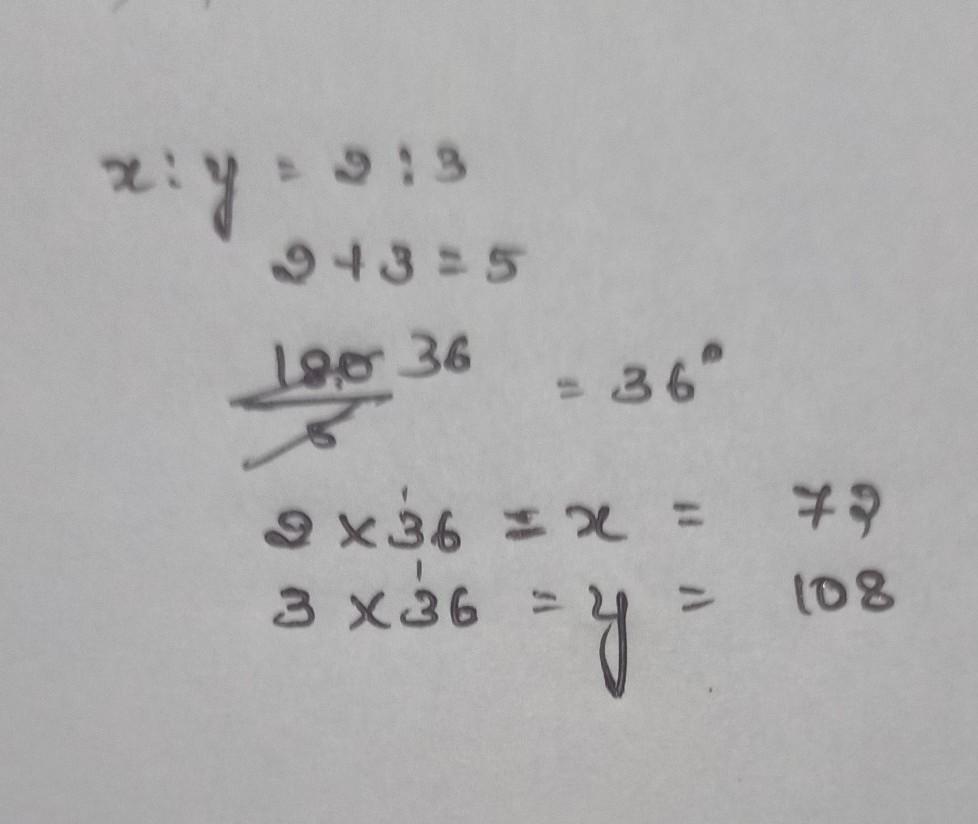 x : y = 2 : 3
2 + 3 = 5
180 36 = 36°
5
2 × 36 = x = 72
1
3 × 36 = y = 108
1